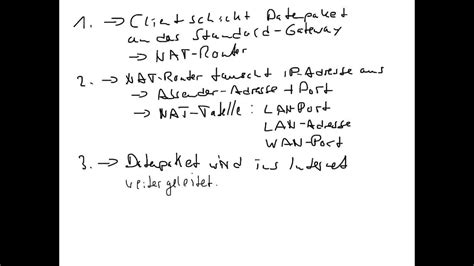 1. → Client schickt Datenpaket
an das Standard-Gateway
→ NAT-Router
2. → NAT-Router tauscht IP-Adresse aus
→ Absender-Adresse + Port
→ NAT-Tabelle: LAN-Port
LAN-Adresse
WAN-Port
3. → Datenpaket wird ins Internet
weitergeleitet.